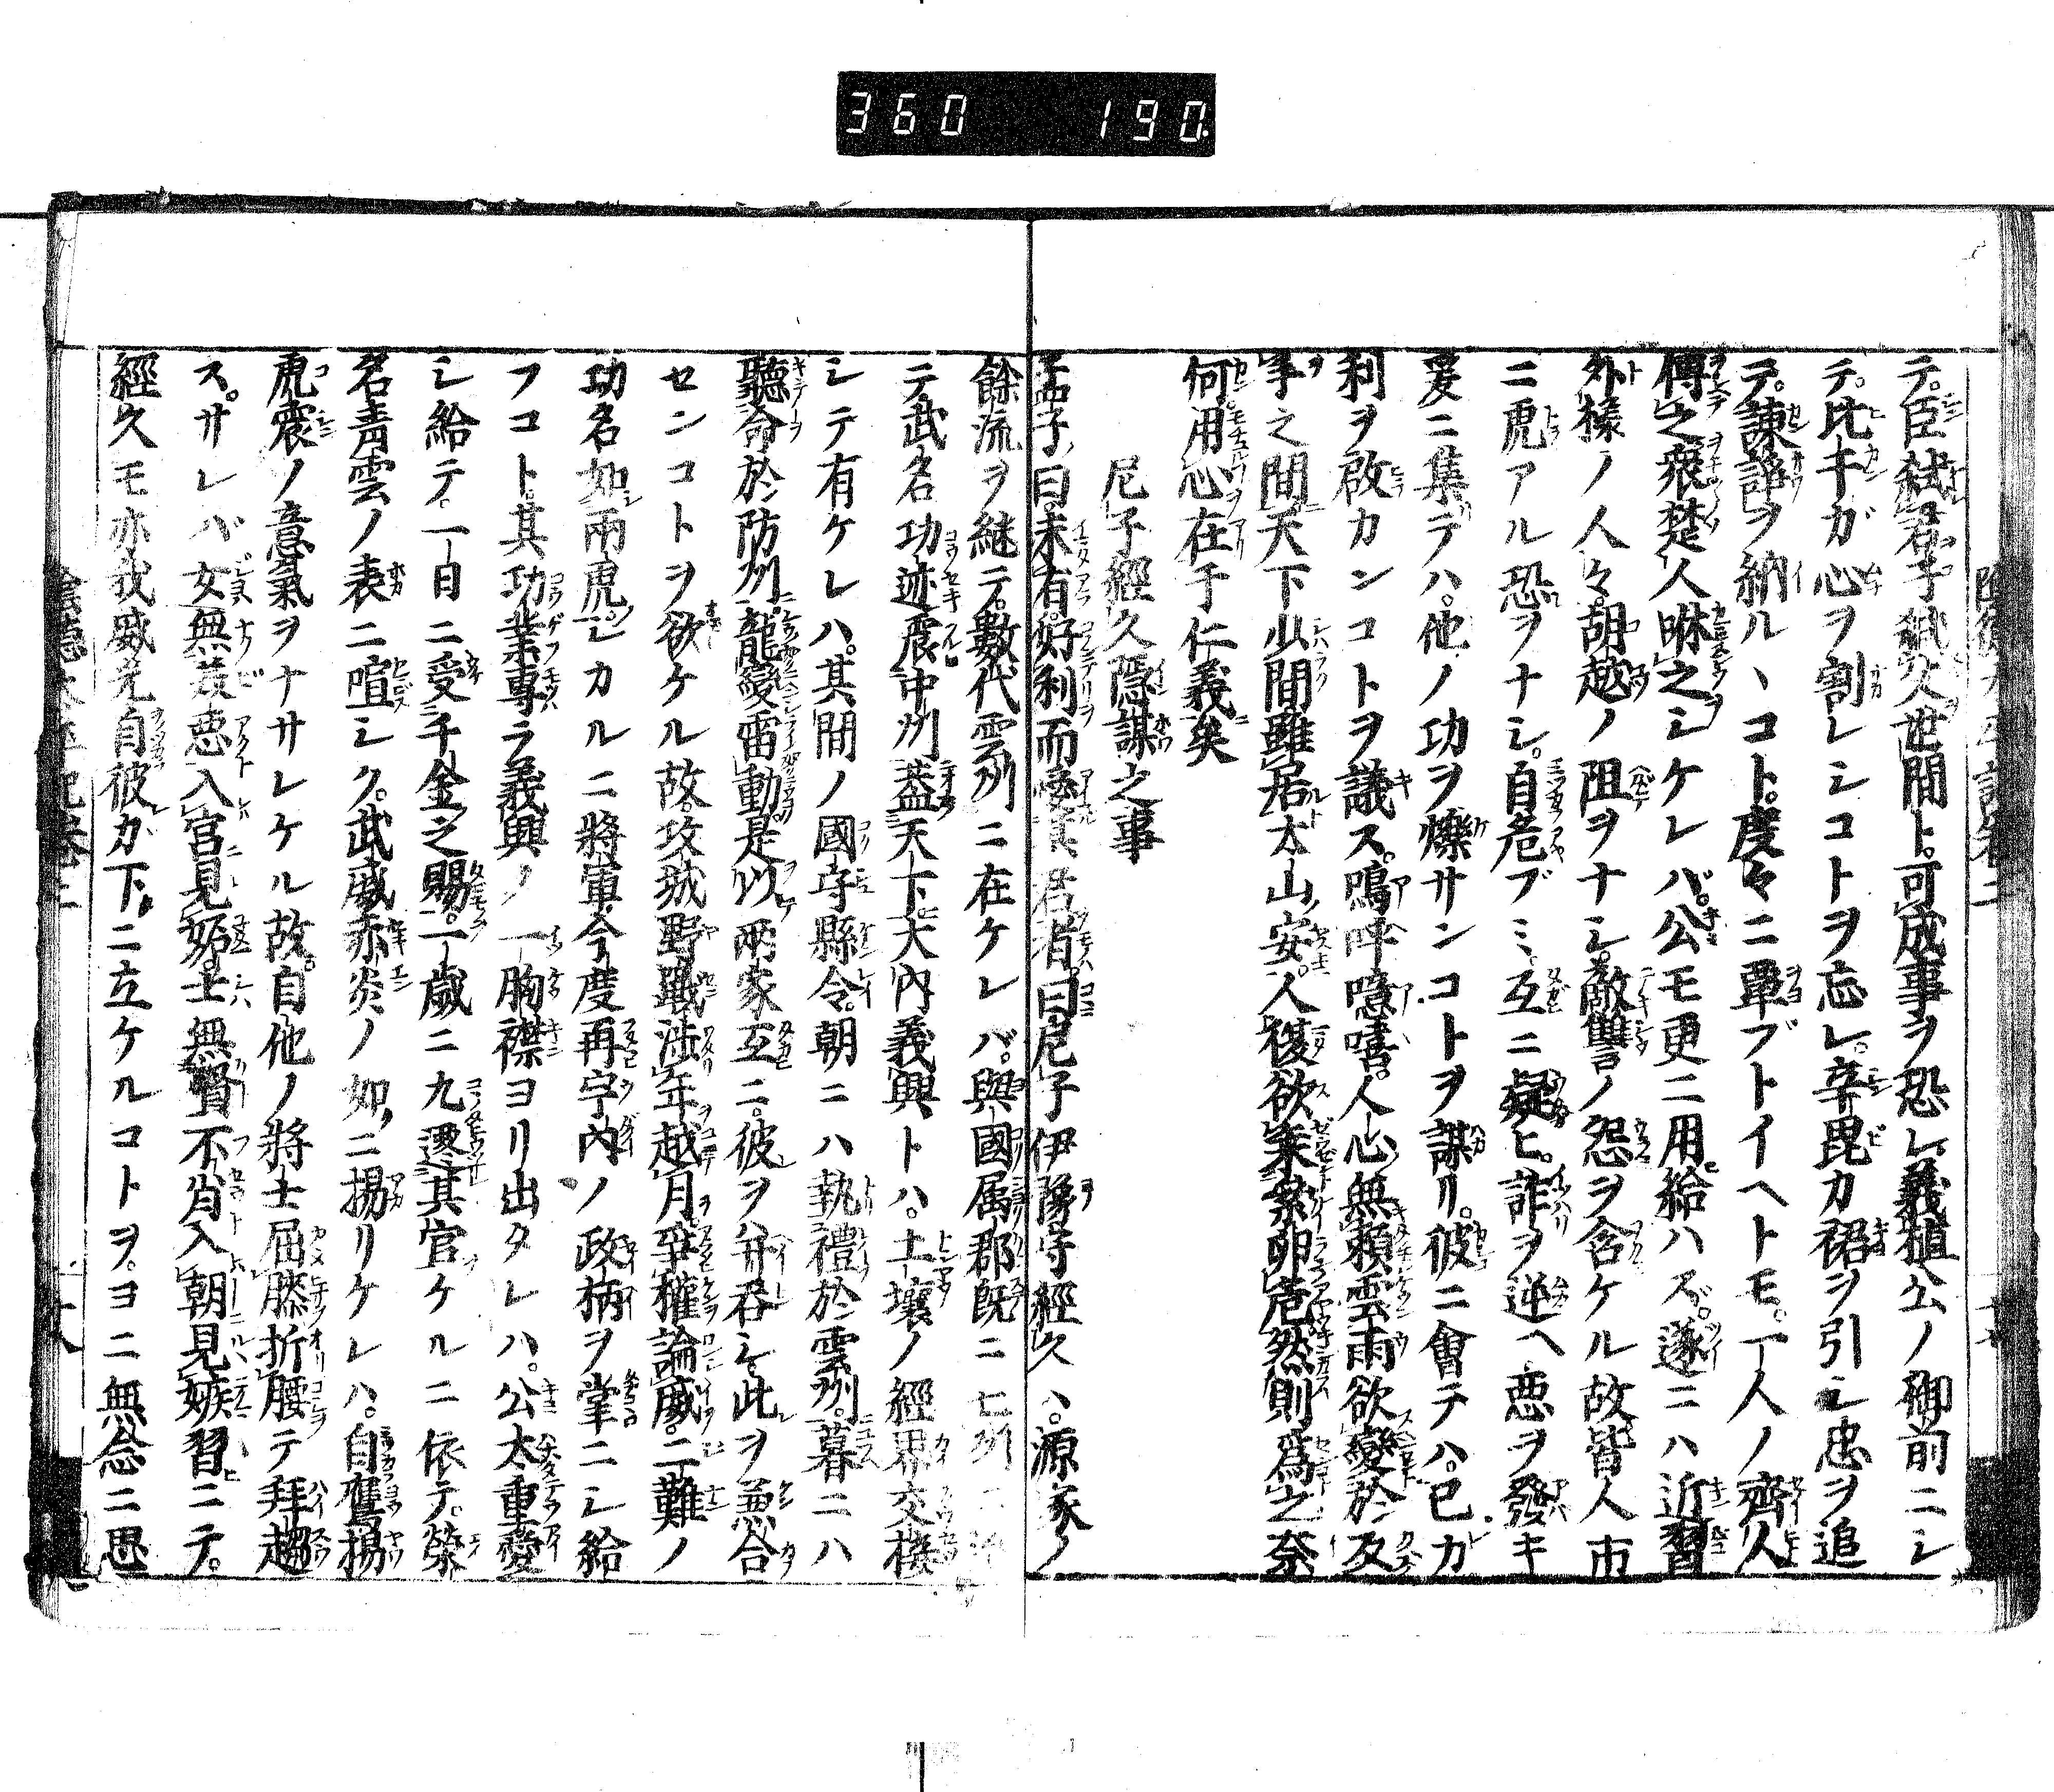 360 190.
テ。臣弑君子弑父世間ト。可成事ヲ恐レ義植公ノ御前ニシ
テ。比干ガ心ヲ割レシコトヲ忘レ。辛毘カ裾ヲ引シ忠ヲ追
テ。諫諍ヲ納ルヽコト。度々ニ覃ブトイヘトモ。一人ノ齊人
傅之衆楚人咻之シケレバ。公モ更ニ用給ハズ。遂ニハ近習
外様ノ人々。胡越ノ阻ヲナシ。敵讐ノ怨ヲ含ケル故。皆人市
ニ虎アル恐ヲナシ。自危ブミ互ニ疑ヒ。詐ヲ逆ヘ悪ヲ發キ
爰ニ集テハ。他ノ功ヲ爍サンコトヲ謀リ。彼ニ會テハ。已カ
利ヲ啟カンコトヲ議ス。嗚呼噫嘻。人心無頼雲雨欲變於反
手之間天下少間雖居太山安。人復欲乗累卵危。然則爲之奈
何。用心在于仁義矣
尼子經久隱謀之事
孟子曰。未有好利而愛其君者。曰尼子伊豫守經久ハ。源家ノ
餘流ヲ継テ。數代雲州ニ在ケレバ。與國属郡既ニ七州ニ
テ。武名功迹震中州蓋天下。大内義興トハ。土壤ノ經界交接
シテ有ケレハ。其間ノ國守縣令。朝ニハ執禮於雲州。暮ニハ
聽命於防州。龍變雷動。是以兩家互ニ。彼ヲ并呑シ。此ヲ兼合
センコトヲ欲ケル故。攻城野戰渉年越月爭權論威。二難ノ
功名如兩虎。シカルニ將軍今度再宇内ノ政柄ヲ掌ニシ給
フコト。其功業專ラ義興ノ一胸襟ヨリ出タレハ。公太重愛
シ給テ。一日ニ受千金之賜。一歳ニ九遷其官ケルニ依テ。榮
名青雲ノ表ニ喧シク。武威赤炎ノ如ニ揚リケレハ。自鷹揚
虎震ノ意氣ヲナサレケル故。自他ノ將士屈膝折腰テ拜趨
ス。サレバ女無美悪入宮見妬。士無賢不肖入朝見嫉習ニテ。
經久モ亦我威光自彼カ下ニ立ケルコトヲ。ヨニ無念ニ思